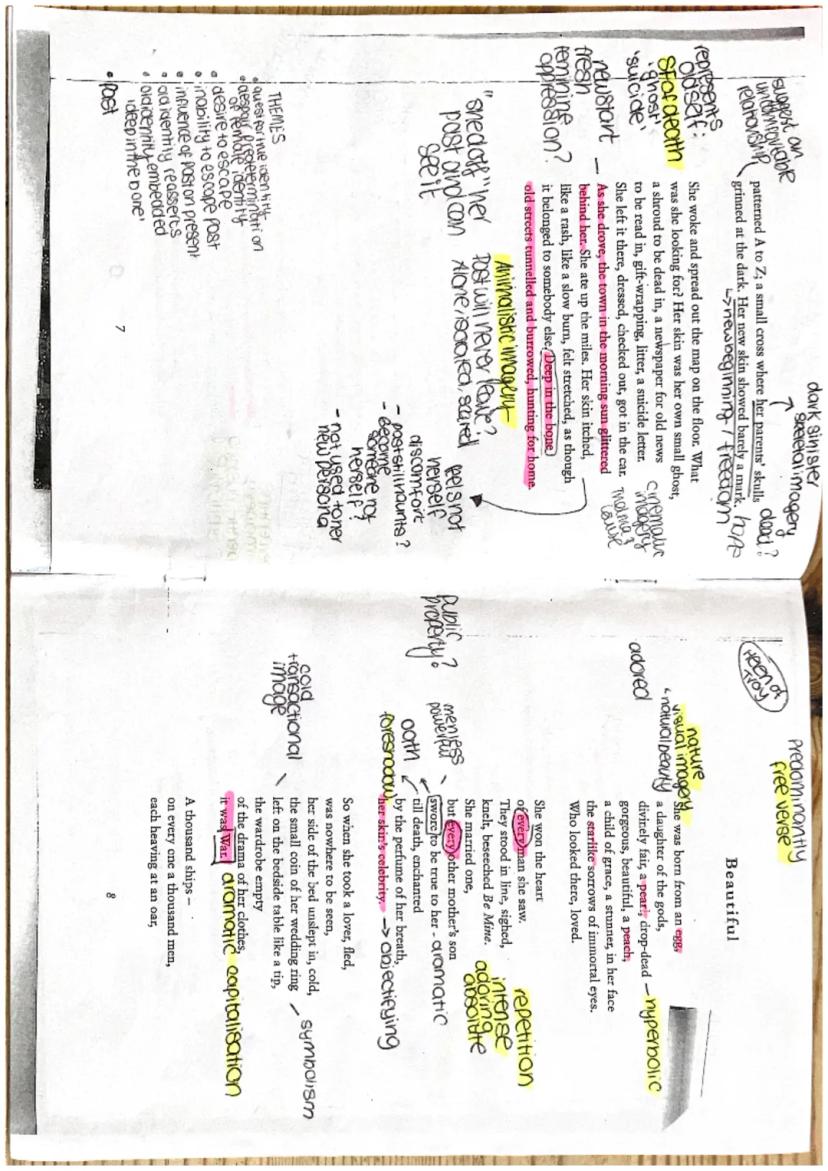 dark sinister
skeletal imagery
suggest an
uncomfortable
relationship
patterned A to Z; a small cross where her parents' skulls
dead?
grinned at the dark. Her new skin showed barely a mark.
hope
↳ new beginning / freedom
represents
old self:
SF of death
'ghost'
'suicide'
She woke and spread out the map on the floor. What
was she looking for? Her skin was her own small ghost,
a shroud to be dead in, a newspaper for old news
to be read in, gift-wrapping, litter, a suicide letter.
She left it there, dressed, checked out, got in the car.
cinematic
imagery
thelma &
louise
new start
fresh
feminine
oppression?
As she drove, the town in the morning sun glittered
behind her. She ate up the miles. Her skin itched,
like a rash, like a slow burn, felt stretched, as though
it belonged to somebody else. Deep in the bone
old streets tunnelled and burrowed, hunting for home.
Animalistic imagery
"shed off" her
past and can
see it
Past will never leave?
Alone, isolated, scared
feels not
herself
discomfort
- past still haunts?
- become
someone not
herself?
- not used to her
new persona
THEMES
• quest for true identity
• despair / predetermination
of female identity
• desire to escape
• inability to escape past
• influence of past on present
• old identity reasserts
• old identity embedded
'deep in the bone'
• Past
7
Predominantly
free verse
Helen of
Troy
Beautiful
nature
visual imagery
'natural beauty
adored
She was born from an egg,
a daughter of the gods,
divinely fair, a pearl, drop-dead
- hyperbolic
gorgeous, beautiful, a peach,
a child of grace, a stunner, in her face
the starlike sorrows of immortal eyes.
Who looked there, loved.
She won the heart
of every man she saw.
They stood in line, sighed,
knelt, beseeched Be Mine.
She married one,
but every other mother's son
swore to be true to her
- dramatic
till death, enchanted
by the perfume of her breath,
her skin's celebrity.
→ objectifying
repetition
intense
adoring
absolute
men less
powerful
oath
foreshadow
public
property?
So when she took a lover, fled,
was nowhere to be seen,
her side of the bed unslept in, cold,
the small coin of her wedding ring
- symbolism
left on the bedside table like a tip,
the wardrobe empty
of the drama of her clothes,
it was War.
dramatic capitalisation
cold
transactional
image
A thousand ships –
on every one a thousand men,
each heaving at an oar,
8